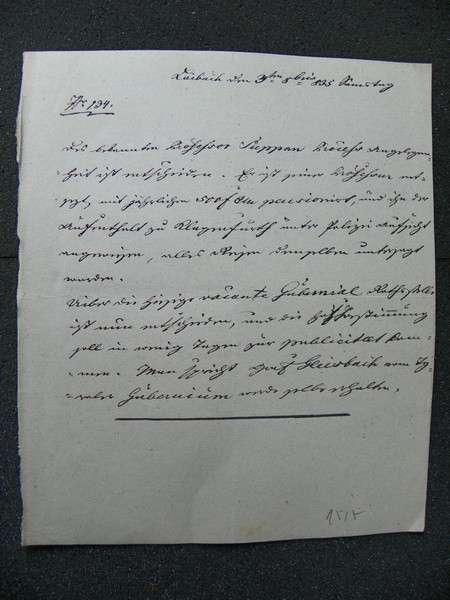 Laibach den 3ten 8ber 835 Samstag
Nr 134.
Des bekannten Professors Suppan Prozeß Angelegen-
heit ist entschieden. Er ist seiner Professur ent-
setzt, mit jährlichen 500f pensioniert, und ihm der
Aufenthalt zu Klagenfurth unter Polizei Aufsicht
angewiesen, alles Reisen demselben untersagt
worden.
Uiber die hiesige vacante Gubernial Rathsstelle
ist nun entschieden, und die Bestimmung
soll in wenig Tagen zur publicität kom-
men. Man spricht Graf Gleisbach vom
Gubernium werde selbe erhalten.